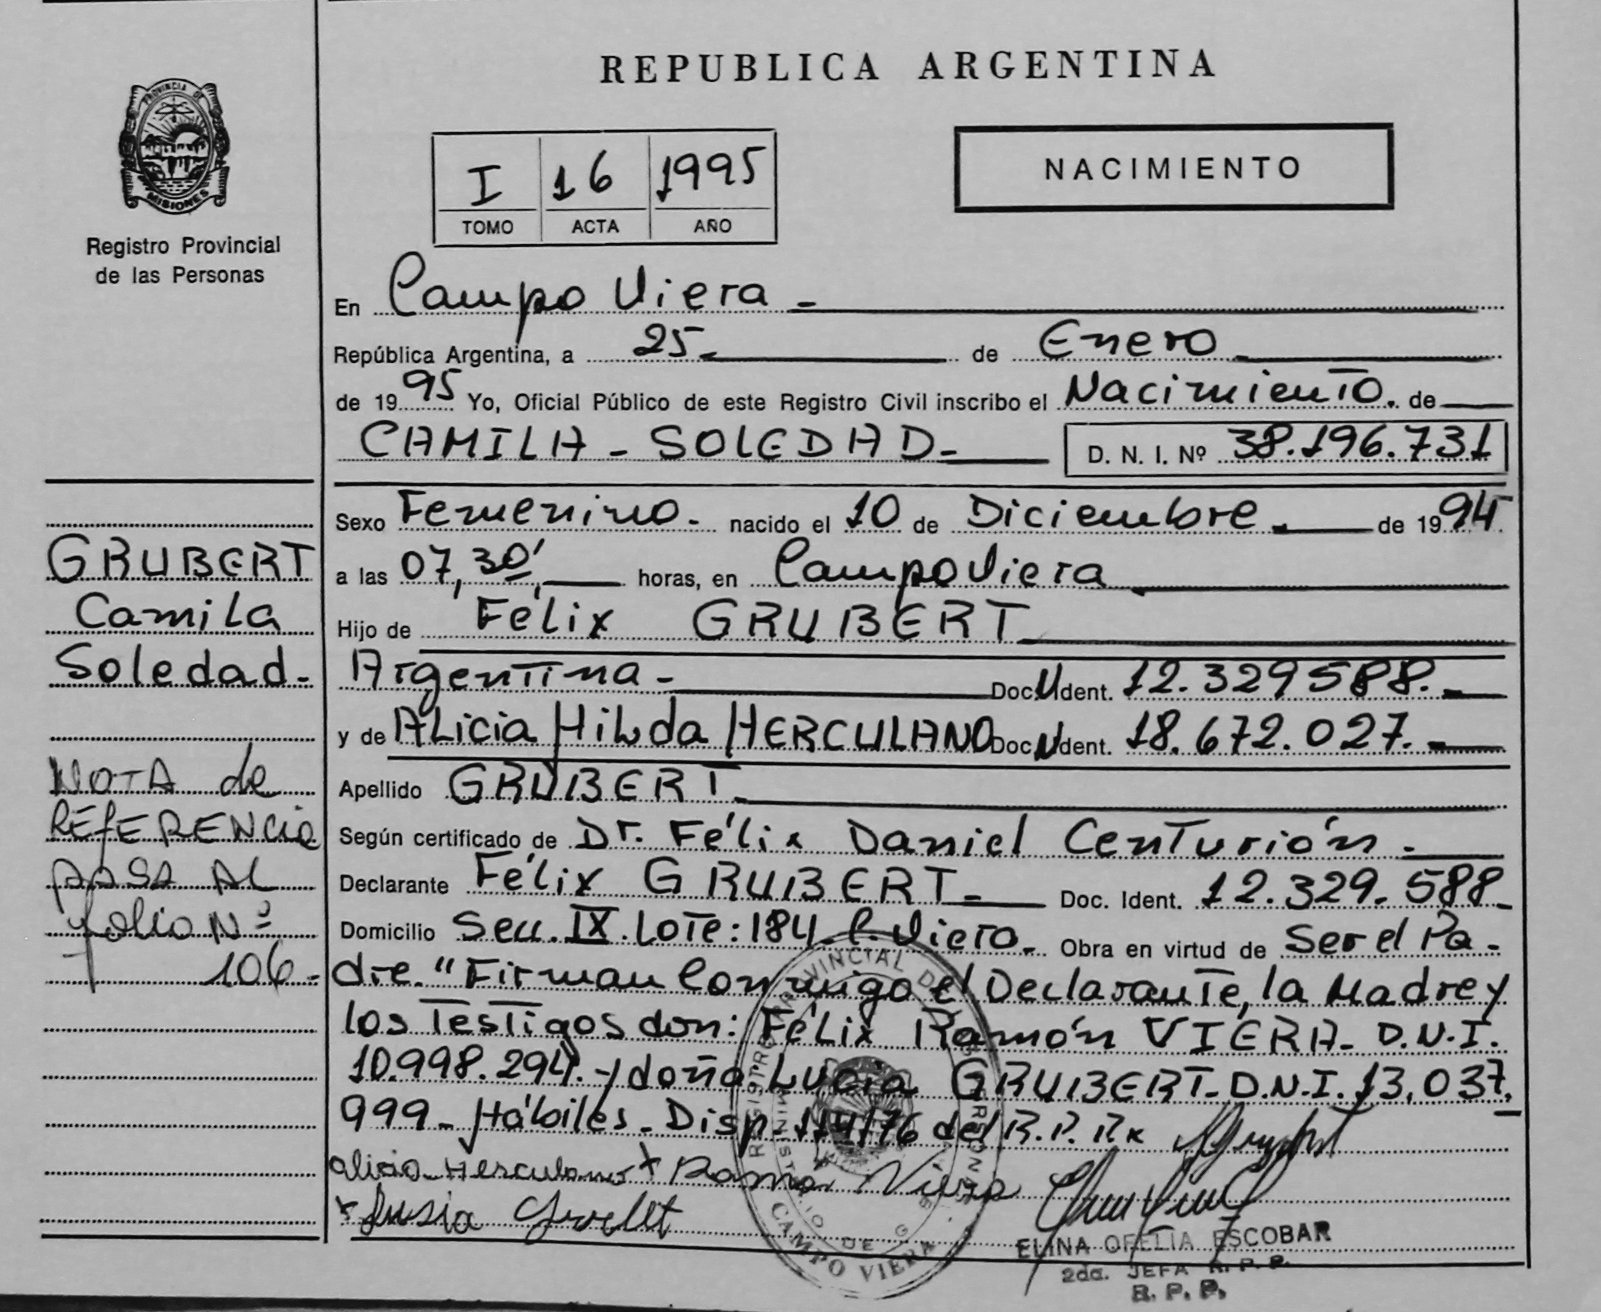 REPUBLICA ARGENTINA
PROVINCIA DE
MISIONES
Registro Provincial
de las Personas
I 16 1995
TOMO ACTA AÑO
NACIMIENTO
En Campo Viera -
República Argentina, a 25- de Enero
de 1995 Yo, Oficial Público de este Registro Civil inscribo el Nacimiento. de
CAMILA - SOLEDAD- D. N. I. Nº 38.196.731
Sexo Femenino- nacido el 10 de Diciembre - de 1994
a las 07,30' horas, en Campo Viera
Hijo de Félix GRUBERT
Argentina - Doc. Ident. 12.329588.-
y de ALicia Hilda HERCULANO Doc. Ident. 18.672.027.-
Apellido GRUBERT-
Según certificado de Dr. Félix Daniel Centurión.
Declarante Félix GRUBERT- Doc. Ident. 12.329.588-
Domicilio Secc. IX. Lote: 184. C. Viera.- Obra en virtud de Ser el Pa-
dre. "Firman Conmigo el Declarante, la Madre y
los Testigos don: Félix Ramón VIERA- D.N.I.
10.998.294.- y doña Lucía GRUBERT- D.N.I. 13.037.
999- Hábiles- Disp. 114/76 del R.P.P.
Alicia Herculano x Ramón Viera
x Lusia Grubert
GRUBERT
Camila
Soledad-
NOTA de
REFERENCIA
PASA AL
folio Nº
106-
REGISTRO PROVINCIAL DE LAS PERSONAS
MINISTERIO DE G
CAMPO VIERA
ELINA OFELIA ESCOBAR
2da. JEFA R. P. P.
R. P. P.